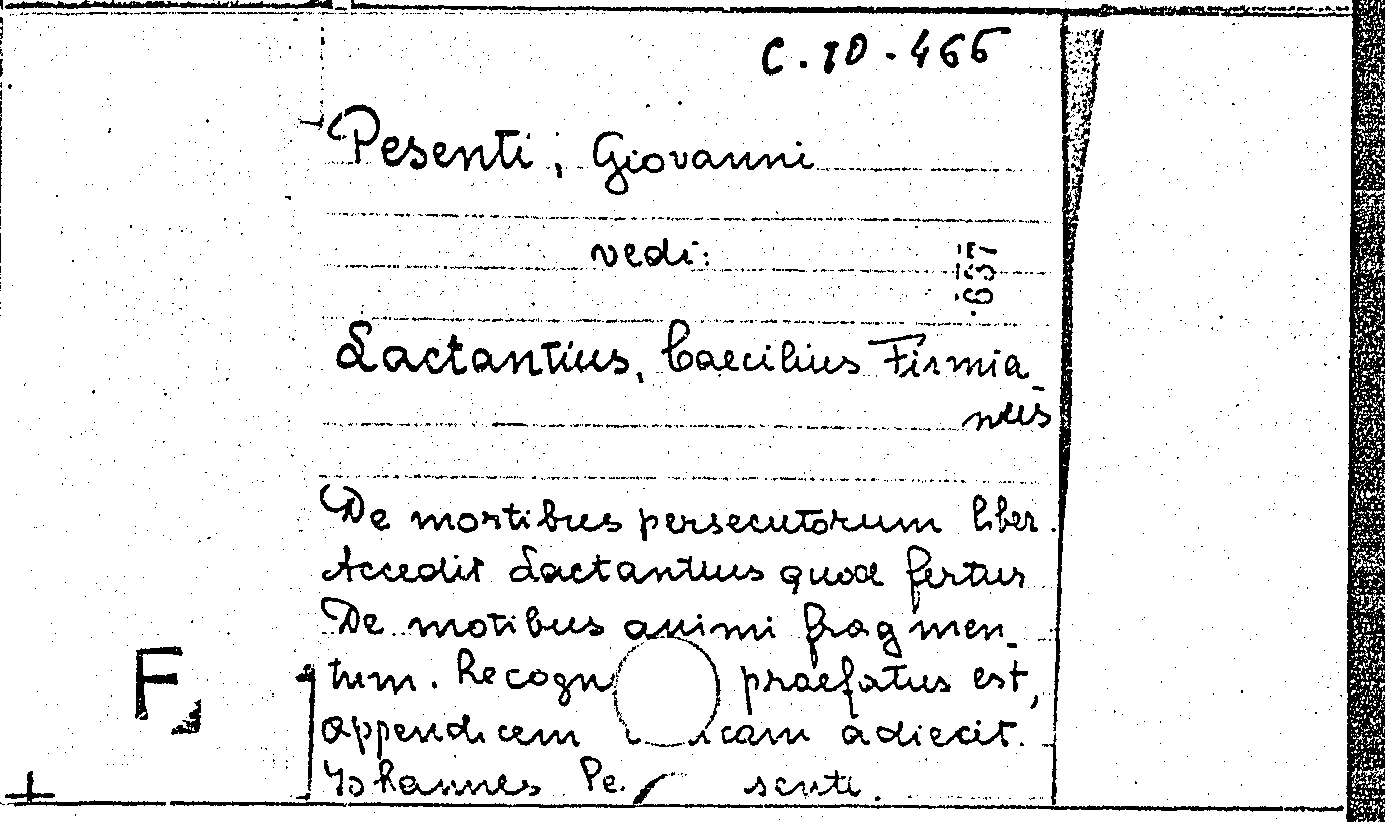 C.10.466
Pesenti, Giovanni
vedi:
637
Lactantius, Caecilius Firmia-
nus
De mortibus persecutorum liber.
Accedit Lactantius quod fertur
De motibus animi fragmen-
tum. Recogn praefatus est,
appendicem cam adiecit.
Iohannes Pe/ senti.
F